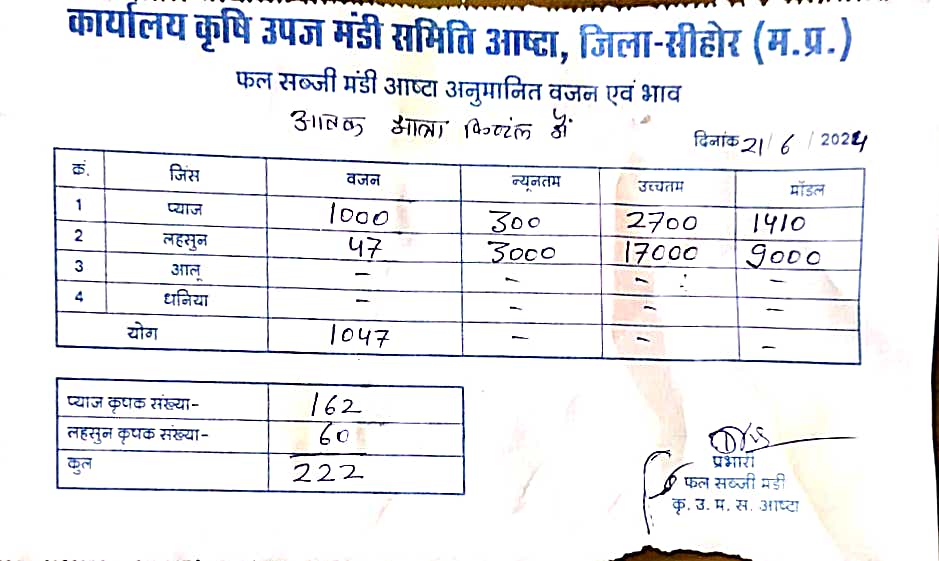 कार्यालय कृषि उपज मंडी समिति आष्टा, जिला-सीहोर (म.प्र.)
फल सब्जी मंडी आष्टा अनुमानित वजन एवं भाव
आवक मात्रा क्विंटल में
दिनांक 21/6/2024
क्रं. जिंस वजन न्यूनतम उच्चतम मॉडल
1 प्याज 1000 300 2700 1410
2 लहसुन 47 3000 17000 9000
3 आलू - - - -
4 धनिया - - - -
योग 1047 - - -
प्याज कृषक संख्या- 162
लहसुन कृषक संख्या- 60
कुल 222
प्रभारी
फल सब्जी मंडी
कृ. उ. म. स. आष्टा